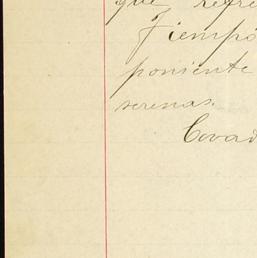 que refre
Tiempo
poniente
serenas.
Covad